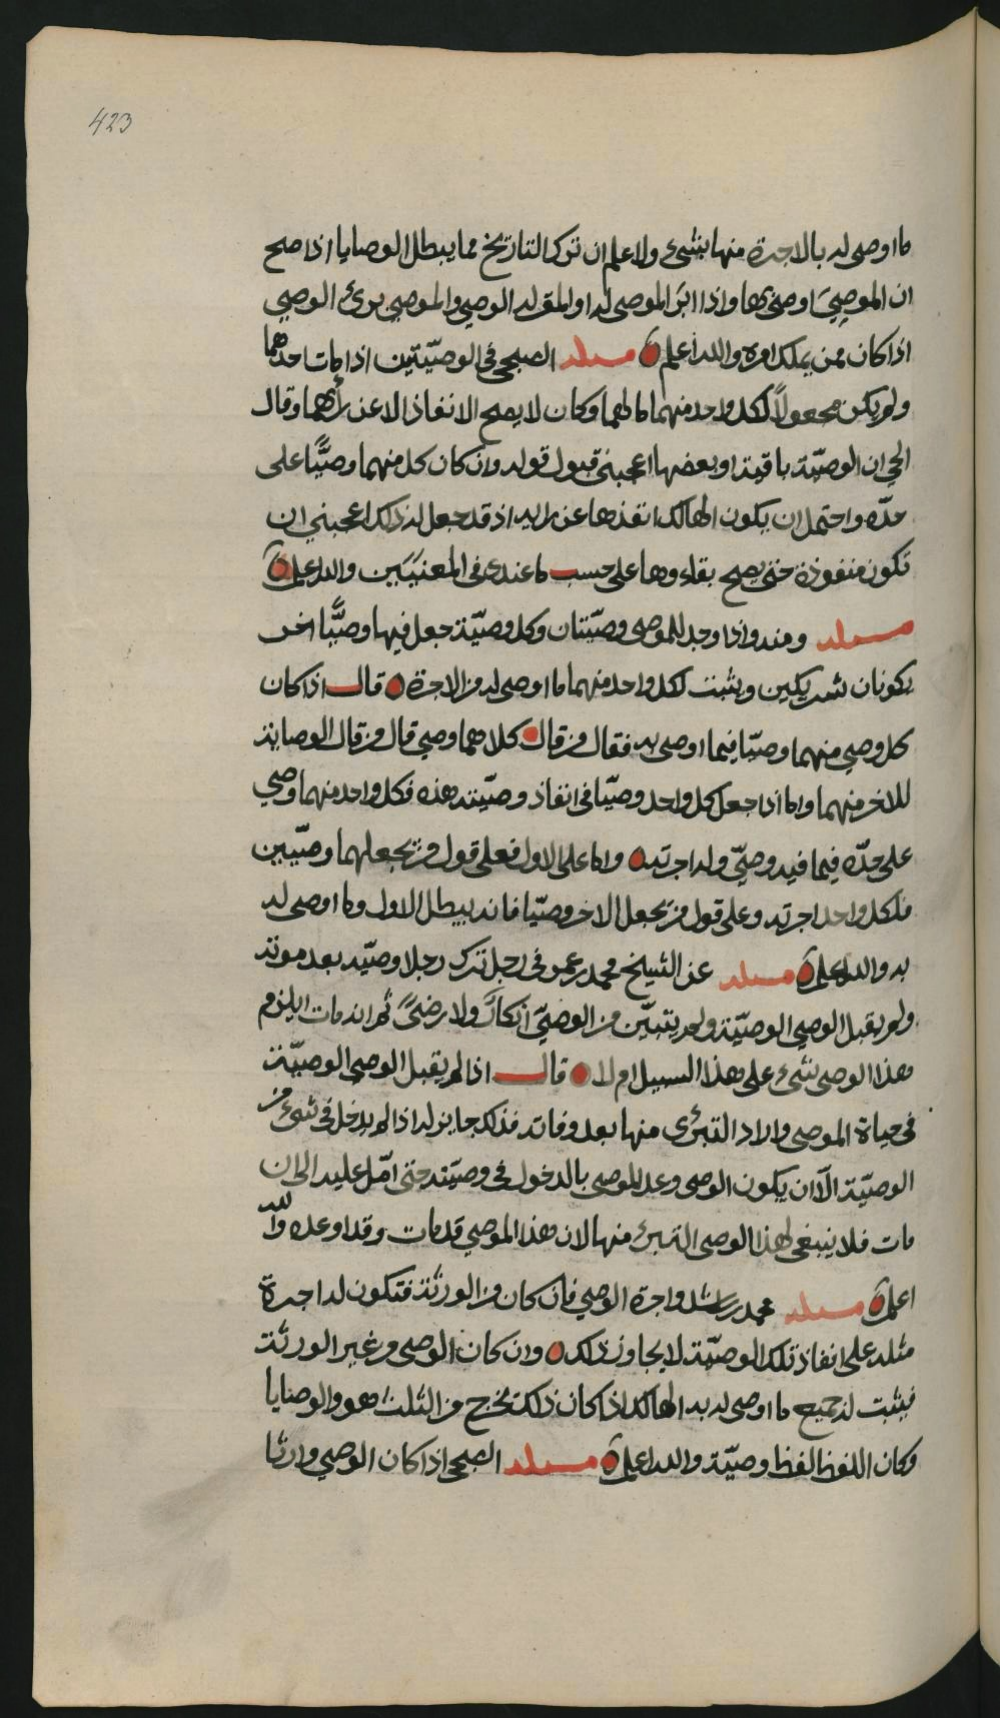 423
ما اوصى له بالاجرة منها بشيء ولا علم ان ترك التاريخ مما يبطل الوصايا اذا صح
ان الموصي اوصى بها واذا ابرَ الموصى له او المقر له الوصي والموصي برئ الوصي
اذا كان ممن يملك امره والله اعلم مسئله الصبحي في الوصيّتين اذا مات احدهما
ولم يكن مجعولاً لكل واحد منهما ما لهما وكان لا يصح الانفاذ الا عن رأيهما وقال
الحي ان الوصيّة باقية او بعضها اعجبني قبول قوله وان كان كل منهما وصيًّا على
حدّه واحتمل ان يكون الهالك انفذها عن رايه اذ قد جعل له ذلك اعجبني ان
تكون منفوذة حتى يصح بقاءوها على حسب ما عندي في المعنيَين والله اعلم
مسئله ومنه واذا وجد للموصي وصيّتان وكل وصيّة جعل فيها وصيًّا اخر
يكونان شريكين ويثبت لكل واحد منهما ما اوصى له من الاجرة قال اذا كان
كل وصي منهما وصيّا فيما اوصى به فقال من قال كلاهما وصي قال من قال الوصاية
للاخر منهما واما اذا جعل كل واحد وصيّا في انفاذ وصيّته هذه فكل واحد منهما وصي
على حدّه فيما فيه وصيّ وله اجرته واما على الاول فعلى قول من يجعلهما وصيّين
فلكل واحد اجرته وعلى قول من يجعل الاخر وصيّا فانه يبطل الاول وما اوصى له
به والله اعلم مسئله عن الشيخ محمد بن عمر في رجل ترك رجلا وصيّه بعد موته
ولم يقبل الوصي الوصيّة ولم يتبيّن من الوصيّ انكارً ولا رضىً ثم انه مات ايلزم
هذا الوصي شيء على هذا السبيل ام لا قال اذا لم يقبل الوصي الوصيّة
في حياة الموصي واراد التبرّي منها بعد وفاته فذلك جايز له اذا لم يدخل في شيء من
الوصيّة الّا ان يكون الوصي وعد للموصي بالدخول في وصيّته حتى امّل عليه الى ان
مات فلا ينبغي لهذا الوصي التبرئ منها لان هذا الموصي قد مات وقد اوعده والله
اعلم مسئله محمد بن راشد واجرة الوصي فان كان من الورثة فتكون له اجرة
مثله على انفاذ تلك الوصيّة لا يجاوز ذلك وان كان الوصي من غير الورثة
فيثبت له جميع ما اوصى له به الهالك اذا كان ذلك يخرج من الثلث هو والوصايا
وكان اللفظ لفظ وصيّة والله اعلم مسئله الصبحي اذا كان الوصي وارثا